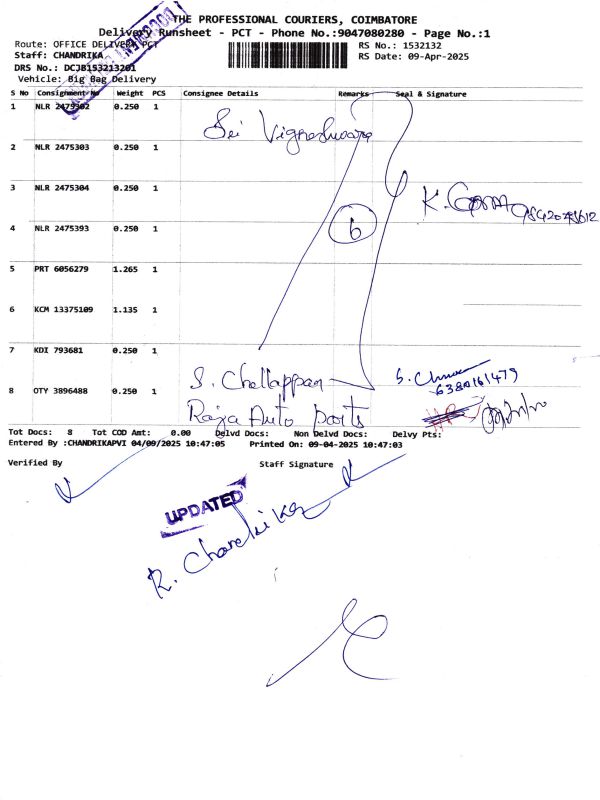 THE PROFESSIONAL COURIERS, COIMBATORE
Delivery Runsheet - PCT - Phone No.:9047080280 - Page No.:1
Route: OFFICE DELIVERY PCT
RS No.: 1532132
Staff: CHANDRIKA
RS Date: 09-Apr-2025
DRS No.: DCJB153213201
Vehicle: Big Bag Delivery
S No Consignment No Weight PCS Consignee Details Remarks Seal & Signature
1 NLR 2475302 0.250 1
Sri Vigneshwara
2 NLR 2475303 0.250 1
3 NLR 2475304 0.250 1
K.
6
4 NLR 2475393 0.250 1
5 PRT 6056279 1.265 1
6 KCM 13375109 1.135 1
7 KDI 793681 0.250 1
S. Chellappan
6380161479
8 OTY 3896488 0.250 1
Raja Auto parts
Tot Docs: 8 Tot COD Amt: 0.00 Delvd Docs: Non Delvd Docs: Delvy Pts:
Entered By :CHANDRIKAPVI 04/09/2025 10:47:05 Printed On: 09-04-2025 10:47:03
Verified By Staff Signature
UPDATED
R. Chandrika